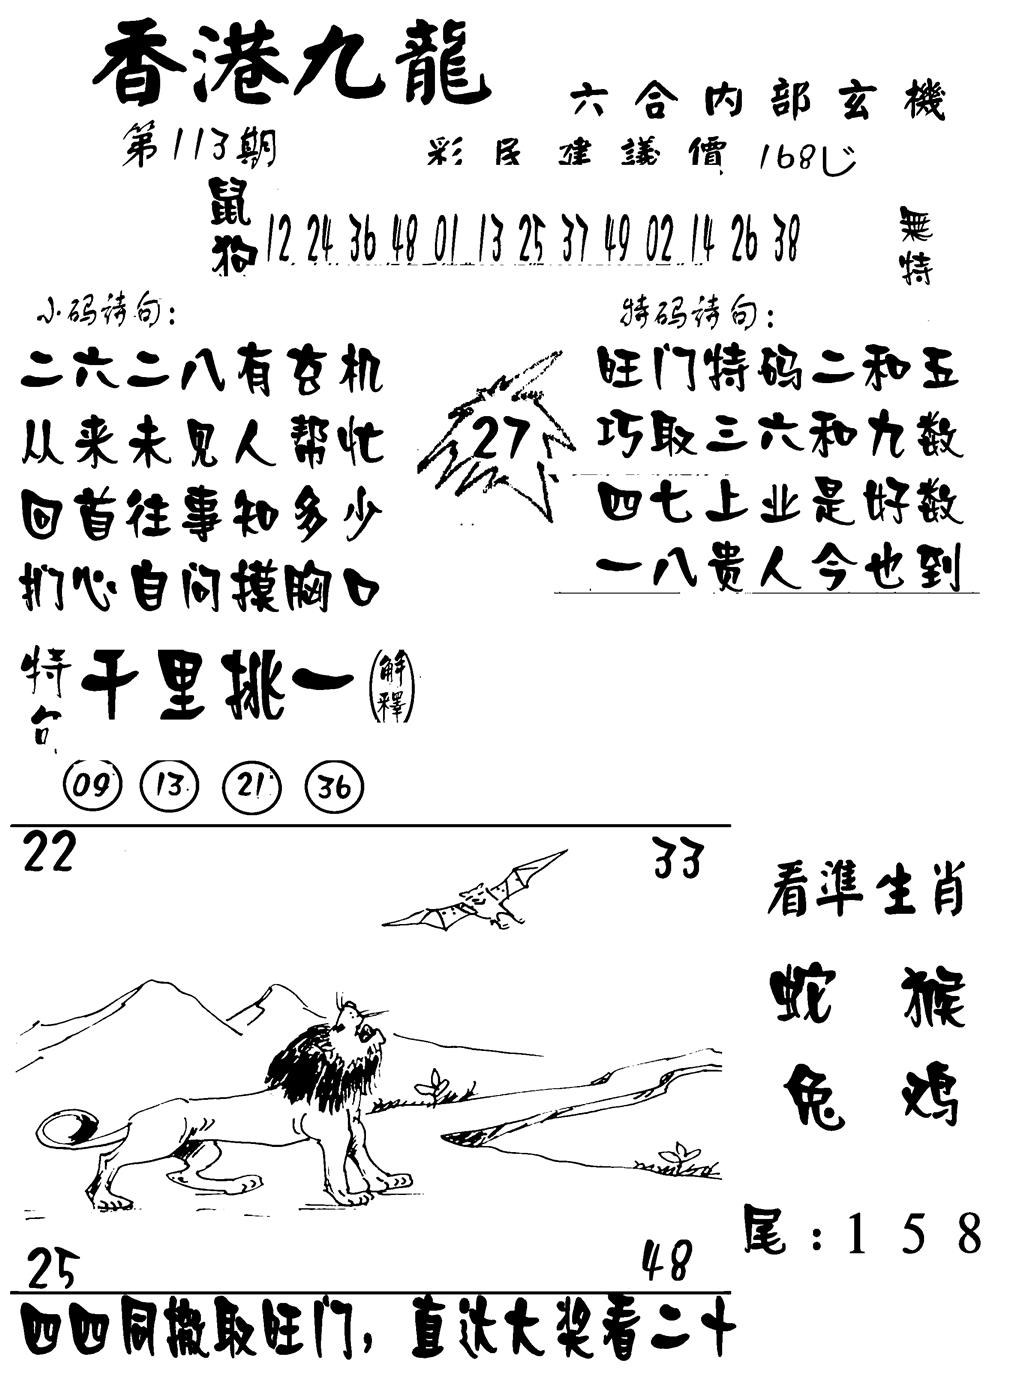 香港九龍
六合内部玄機
第113期
彩民建議價 168
鼠狗 12 24 36 48 01 13 25 37 49 02 14 26 38
無特
小码诗句：
二六二八有玄机
从来未见人帮忙
回首往事知多少
扪心自问摸胸口
27
特码诗句：
旺门特码二和五
巧取三六和九数
四七上业是好数
一八贵人今也到
特 千里挑一 解釋
09 13 21 36
22
33
25
48
看準生肖
蛇 猴
兔 鸡
尾：1 5 8
四四同撒取旺门，直达大奖看二十